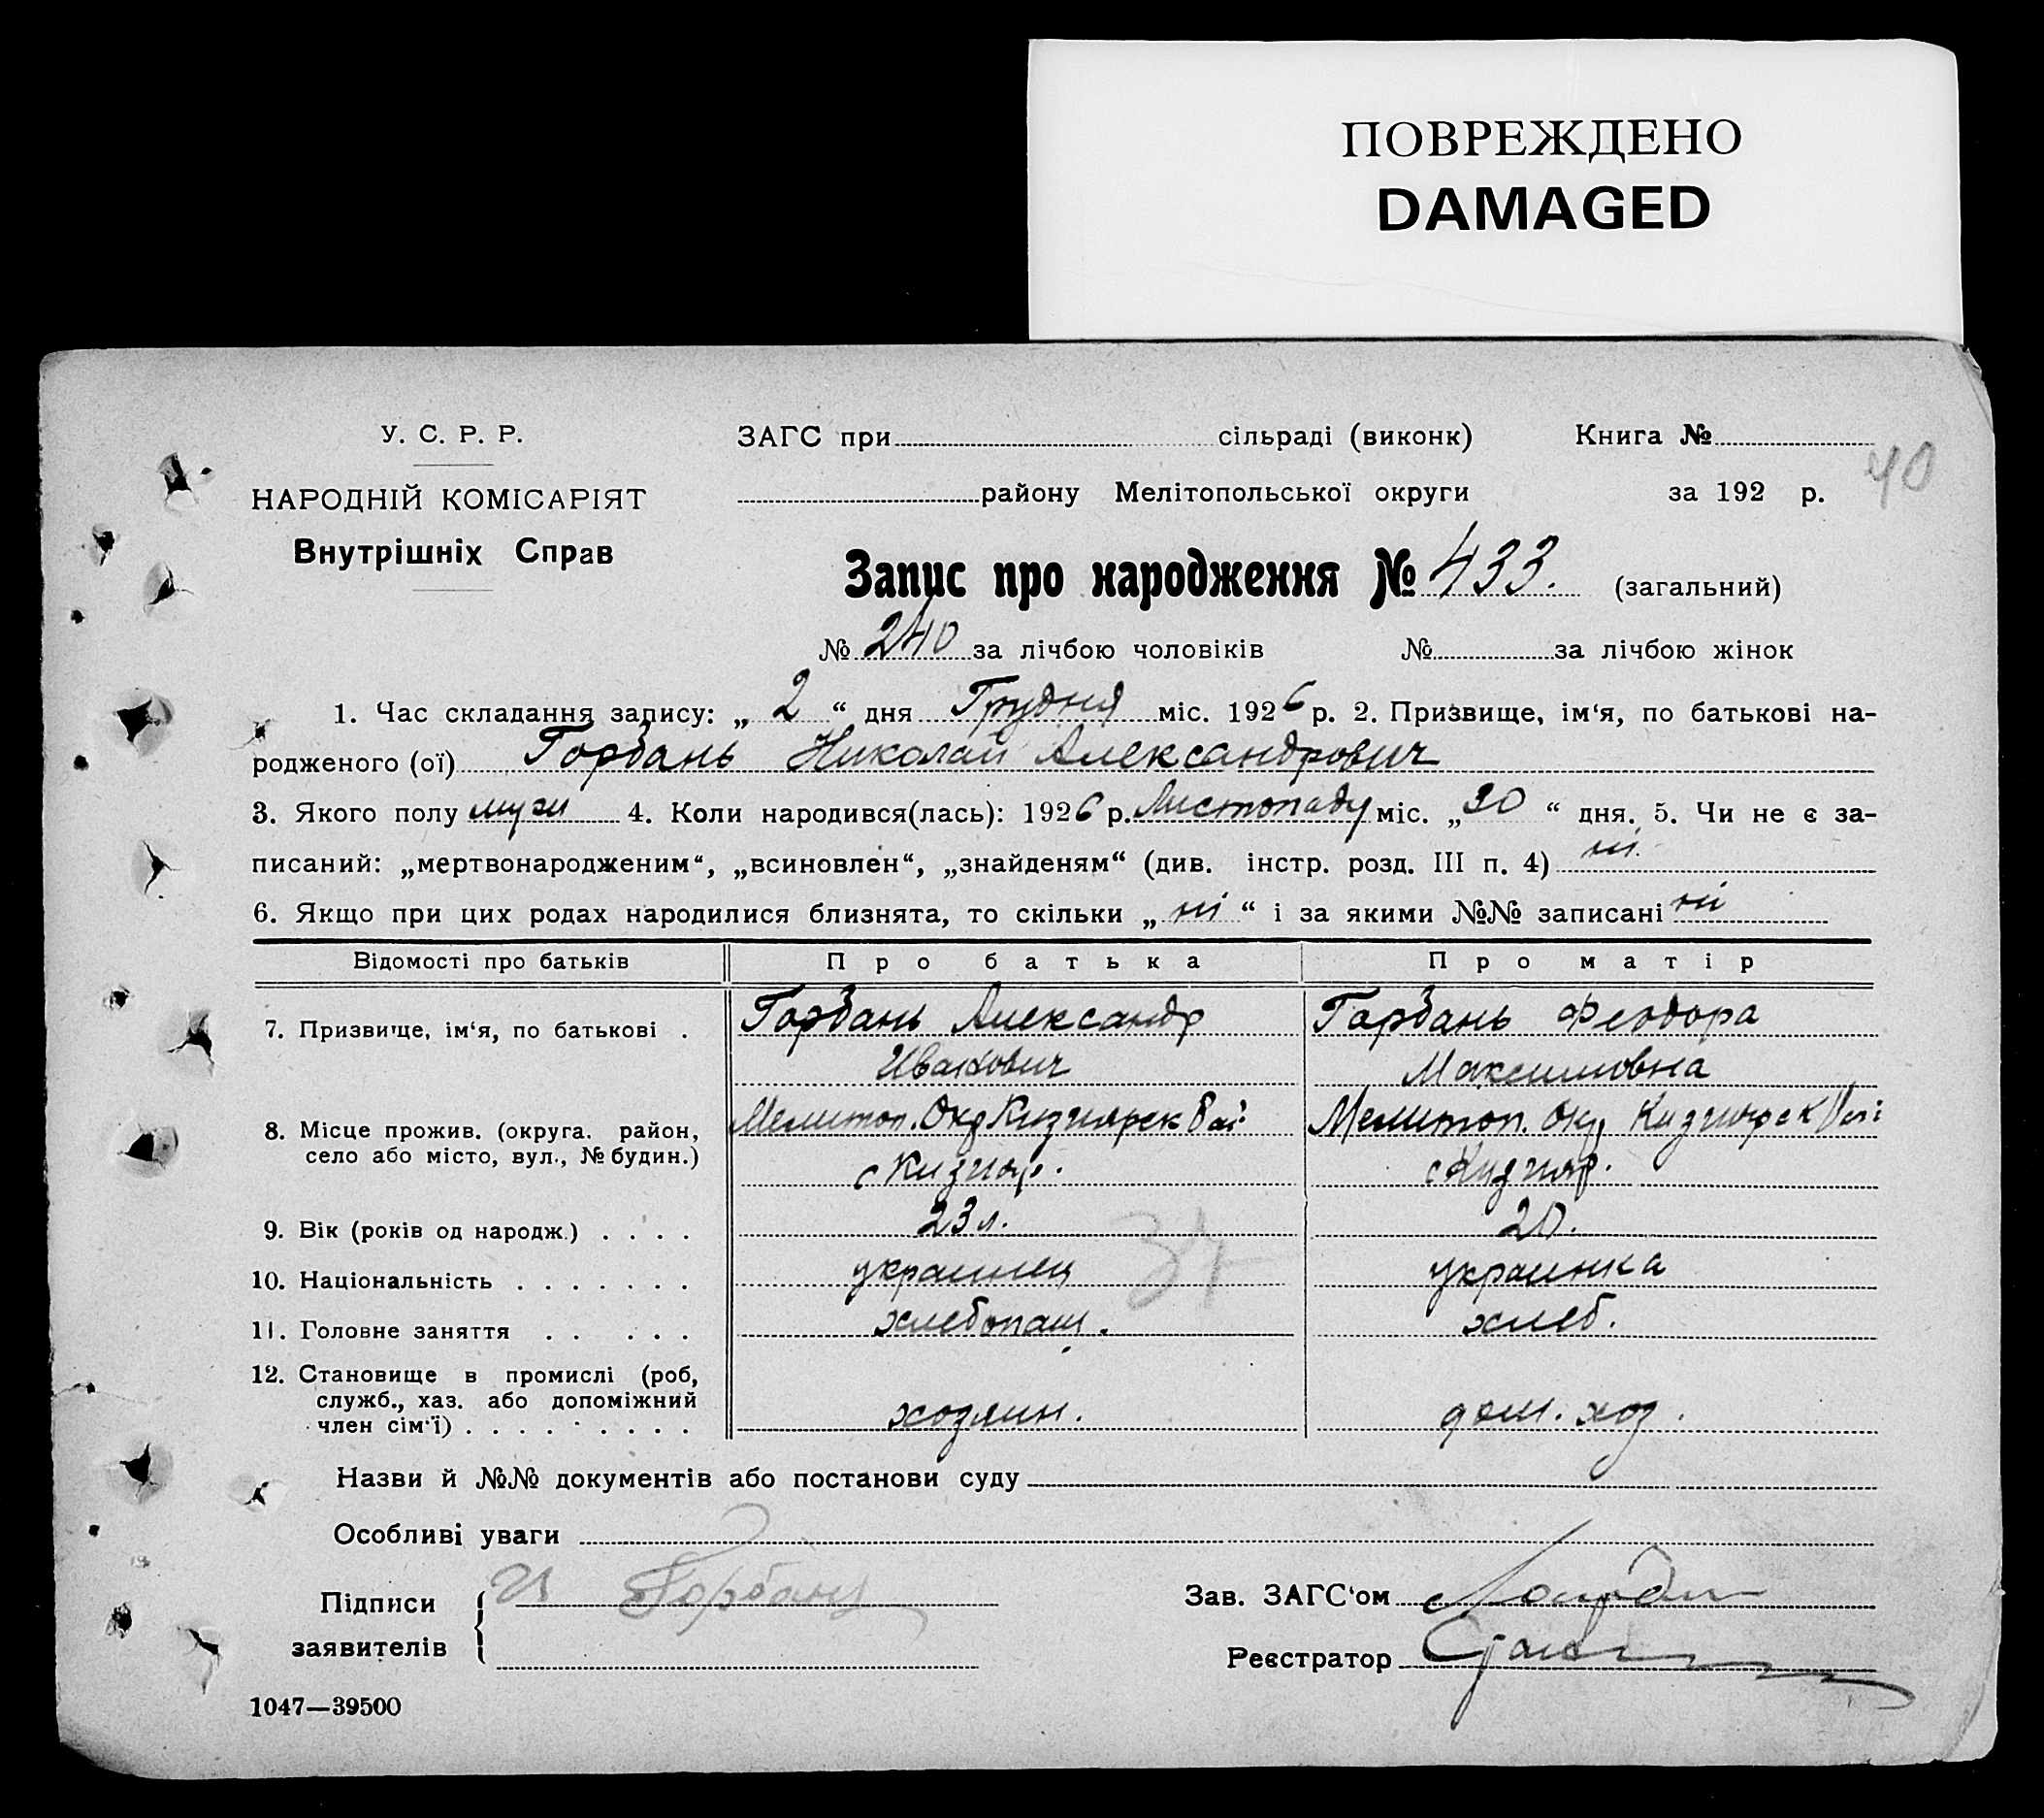 ПОВРЕЖДЕНО
DAMAGED
У. С. Р. Р.
НАРОДНІЙ КОМІСАРІЯТ
Внутрішніх Справ
ЗАГС при сільраді (виконк) Книга №
району Мелітопольської округи за 192 р.
40
Запис про народження № 433. (загальний)
№ 240 за лічбою чоловіків № за лічбою жінок
1. Час складання запису: „ 2 “ дня Грудня міс. 1926 р. 2. Призвище, ім‘я, по батькові на-
родженого (ої) Горбань Николай Александрович
3. Якого полу мужи 4. Коли народився(лась): 1926 р. Листопаду міс. „30 “ дня. 5. Чи не є за-
писаний: „мертвонародженим“, „всиновлен“, „знайденям“ (див. інстр. розд. III п. 4) ні.
6. Якщо при цих родах народилися близнята, то скільки „ ні “ і за якими №№ записані ні
Відомості про батьків Про батька Про матір
7. Призвище, ім‘я, по батькові . Горбань Александр Горбань Феодора
Иванович Максимовна
8. Місце прожив. (округа. район, Мелитоп. Окр Кизиярск Рай Мелитоп. Окр Кизиярск Рай
село або місто, вул., № будин.) с Кизияр. с Кизияр.
9. Вік (років од народж.) . . . . 23 л. 20.
10. Національність . . . . . . . украинец украинка
34
11. Головне заняття . . . . . хлебопаш. хлеб.
12. Становище в промислі (роб,
служб., хаз. або допоміжний
член сім‘ї) . . . . . . . . . хозяин. дом. хоз.
Назви й №№ документів або постанови суду
Особливі уваги
Підписи Горбань
заявителів
Зав. ЗАГС‘ом
Реєстратор
1047—39500